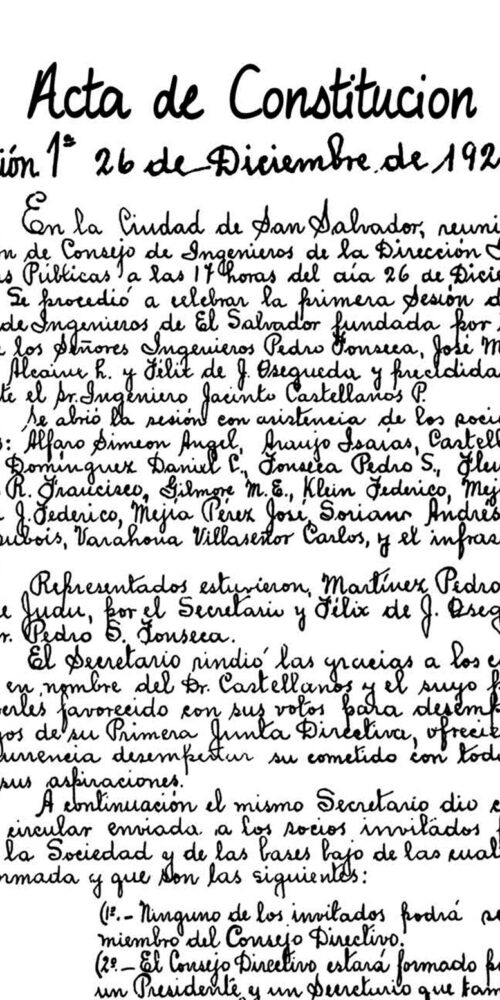 Acta de Constitucion
ión 1ª 26 de Diciembre de 192
En la Ciudad de San Salvador, reuni
n de Consejo de Ingenieros de la Dirección
s Públicas a las 17 horas del día 26 de Dicie
Se procedió a celebrar la primera Sesión d
de Ingenieros de El Salvador fundada por
los Señores Ingenieros Pedro Fonseca, José M
Alcaine R. y Félix de J. Osegueda y precidida
te el Dr. Ingeniero Jacinto Castellanos P.
Se abrió la sesión con asistencia de los socio
s: Alfaro Simeon Angel, Araujo Isaías, Castell
Domínguez Daniel C., Fonseca Pedro S.,
R. Francisco, Gilmore M.E., Klein Federico, Mej
J. Federico, Mejia Pérez José, Soriano Andrés
Dubois, Varahona Villaseñor Carlos, y el infras
Representados estuvieron, Martínez Pedro
e Judu, por el Secretario y Félix de J. Oseg
r. Pedro S. Fonseca.
El Secretario rindió las gracias a los
en nombre del Dr. Castellanos y el suyo
erles favorecido con sus votos para desemp
os de su Primera Junta Directiva, ofrecie
urrencia desempeñar su cometido con toda
sus aspiraciones.
A continuación el mismo Secretario dio
circular enviada a los socios invitados
la Sociedad y de las bases bajo de las cual
rmada y que son las siguientes:
(1º.- Ninguno de los invitados podrá se
miembro del Consejo Directivo.
(2º.- El Consejo Directivo estará formado p
un Presidente y un Secretario que tam